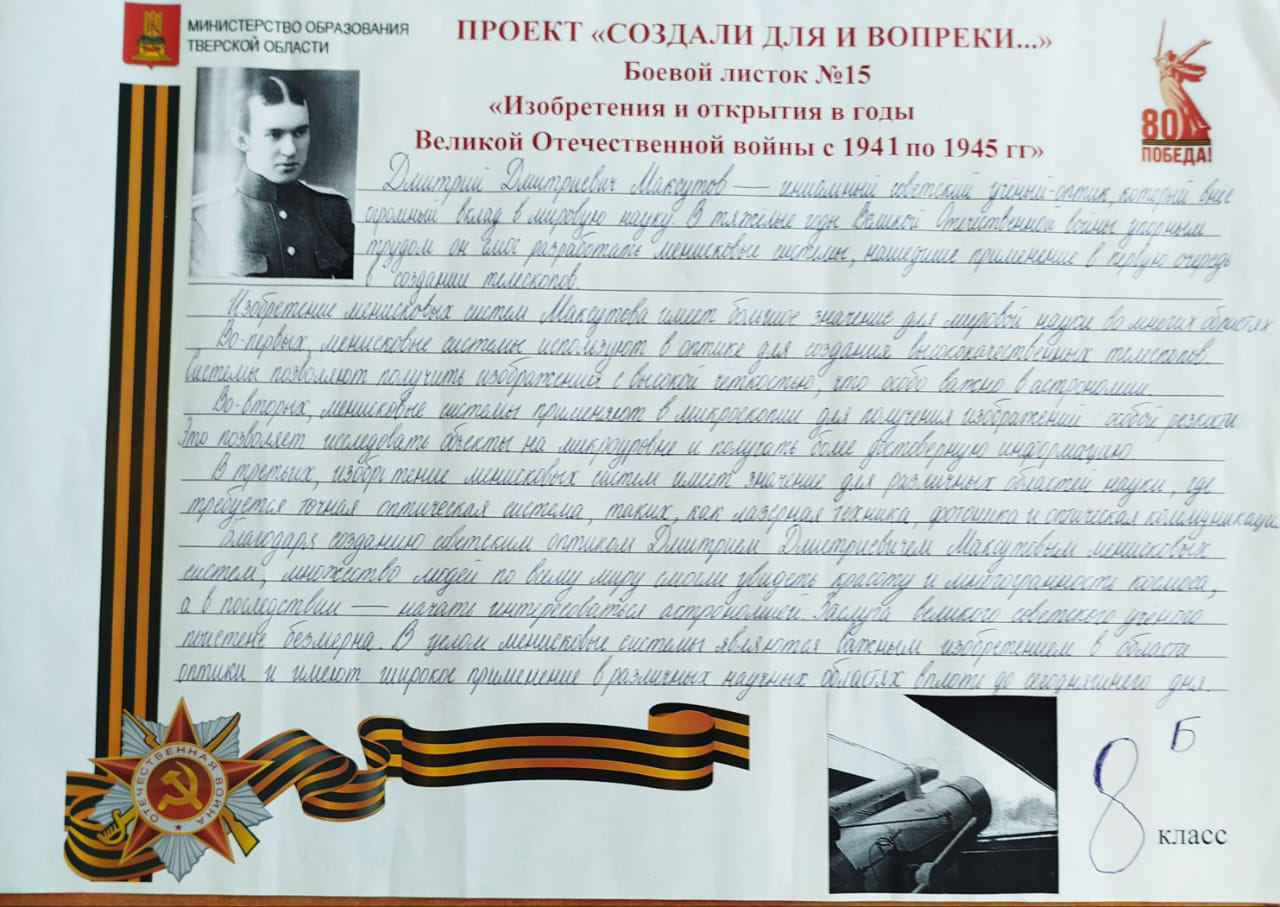 МИНИСТЕРСТВО ОБРАЗОВАНИЯ
ТВЕРСКОЙ ОБЛАСТИ
ПРОЕКТ «СОЗДАЛИ ДЛЯ И ВОПРЕКИ...»
Боевой листок №15
«Изобретения и открытия в годы
Великой Отечественной войны с 1941 по 1945 гг»
80
ПОБЕДА!
Дмитрий Дмитриевич Максутов — гениальный советский учёный-оптик, который внёс
огромный вклад в мировую науку. В тяжёлые годы Великой Отечественной войны упорным
трудом он смог разработать менисковые системы, нашедшие применение в первую очередь
в создании телескопов.
Изобретение менисковых систем Максутова имеет большое значение для мировой науки во многих областях.
Во-первых, менисковые системы используют в оптике для создания высококачественных телескопов.
Системы позволяют получить изображения с высокой чёткостью, что особо важно в астрономии.
Во-вторых, менисковые системы применяют в микроскопии для получения изображений особой резкости.
Это позволяет исследовать объекты на микроуровне и получать более достоверную информацию.
В третьих, изобретение менисковых систем имеет значение для различных областей науки, где
требуется точная оптическая система, таких, как лазерная техника, фотоника и оптическая коммуникация.
Благодаря созданию советским оптиком Дмитрием Дмитриевичем Максутовым менисковых
систем, множество людей по всему миру смогли увидеть красоту и многогранность космоса,
а в последствии — начать интересоваться астрономией. Заслуга великого советского учёного
поистене безмерна. В целом менисковые системы являются важным изобретением в области
оптики и имеют широкое применение в различных научных областях вплоть до сегодняшнего дня.
ОТЕЧЕСТВЕННАЯ ВОЙНА
8 Б
класс